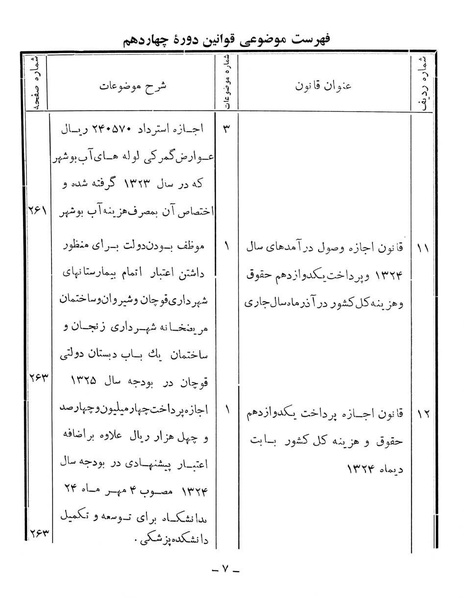 فهرست موضوعی قوانین دورهٔ چهاردهم
شماره ردیف
عنوان قانون
شماره موضوعات
شرح موضوعات
شماره صفحه
۳
اجازه استرداد ۲۴۰۵۷۰ ریال
عوارض گمرکی لوله های آب بوشهر
که در سال ۱۳۲۳ گرفته شده و
اختصاص آن بمصرف هزینه آب بوشهر
۲۶۱
۱۱
قانون اجازه وصول درآمدهای سال
۱۳۲۴ و پرداخت یکدوازدهم حقوق
و هزینه کل کشور در آذرماه سال جاری
۱
موظف بودن دولت برای منظور
داشتن اعتبار اتمام بیمارستانهای
شهرداری قوچان و شیروان و ساختمان
مریضخانه شهرداری زنجان و
ساختمان یك باب دبستان دولتی
قوچان در بودجه سال ۱۳۲۵
۲۶۳
۱۲
قانون اجازه پرداخت یکدوازدهم
حقوق و هزینه کل کشور بابت
دیماه ۱۳۲۴
۱
اجازه پرداخت چهار میلیون و چهارصد
و چهل هزار ریال علاوه بر اضافه
اعتبار پیشنهادی در بودجه سال
۱۳۲۴ مصوب ۴ مهر ماه ۲۴
بدانشگاه برای توسعه و تکمیل
دانشکده پزشکی.
۲۶۳
– ۷ –